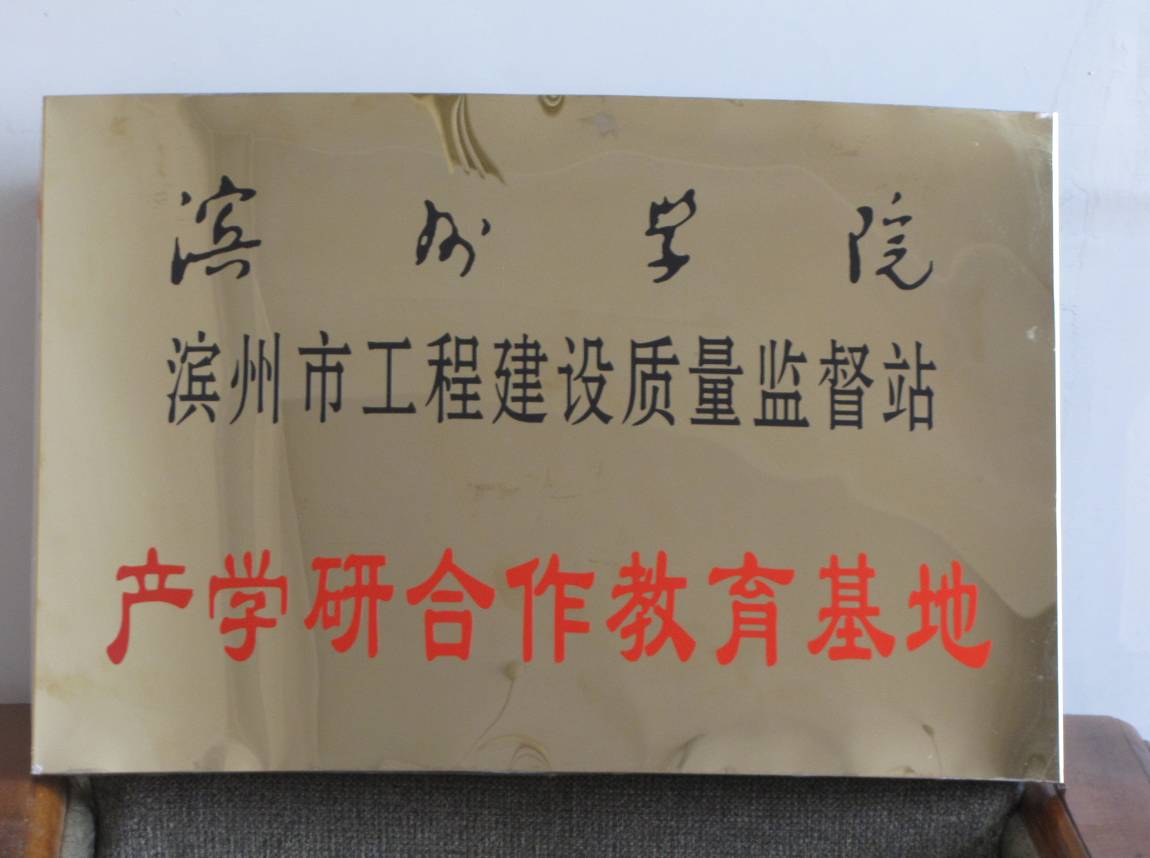 滨州学院
滨州市工程建设质量监督站
产学研合作教育基地